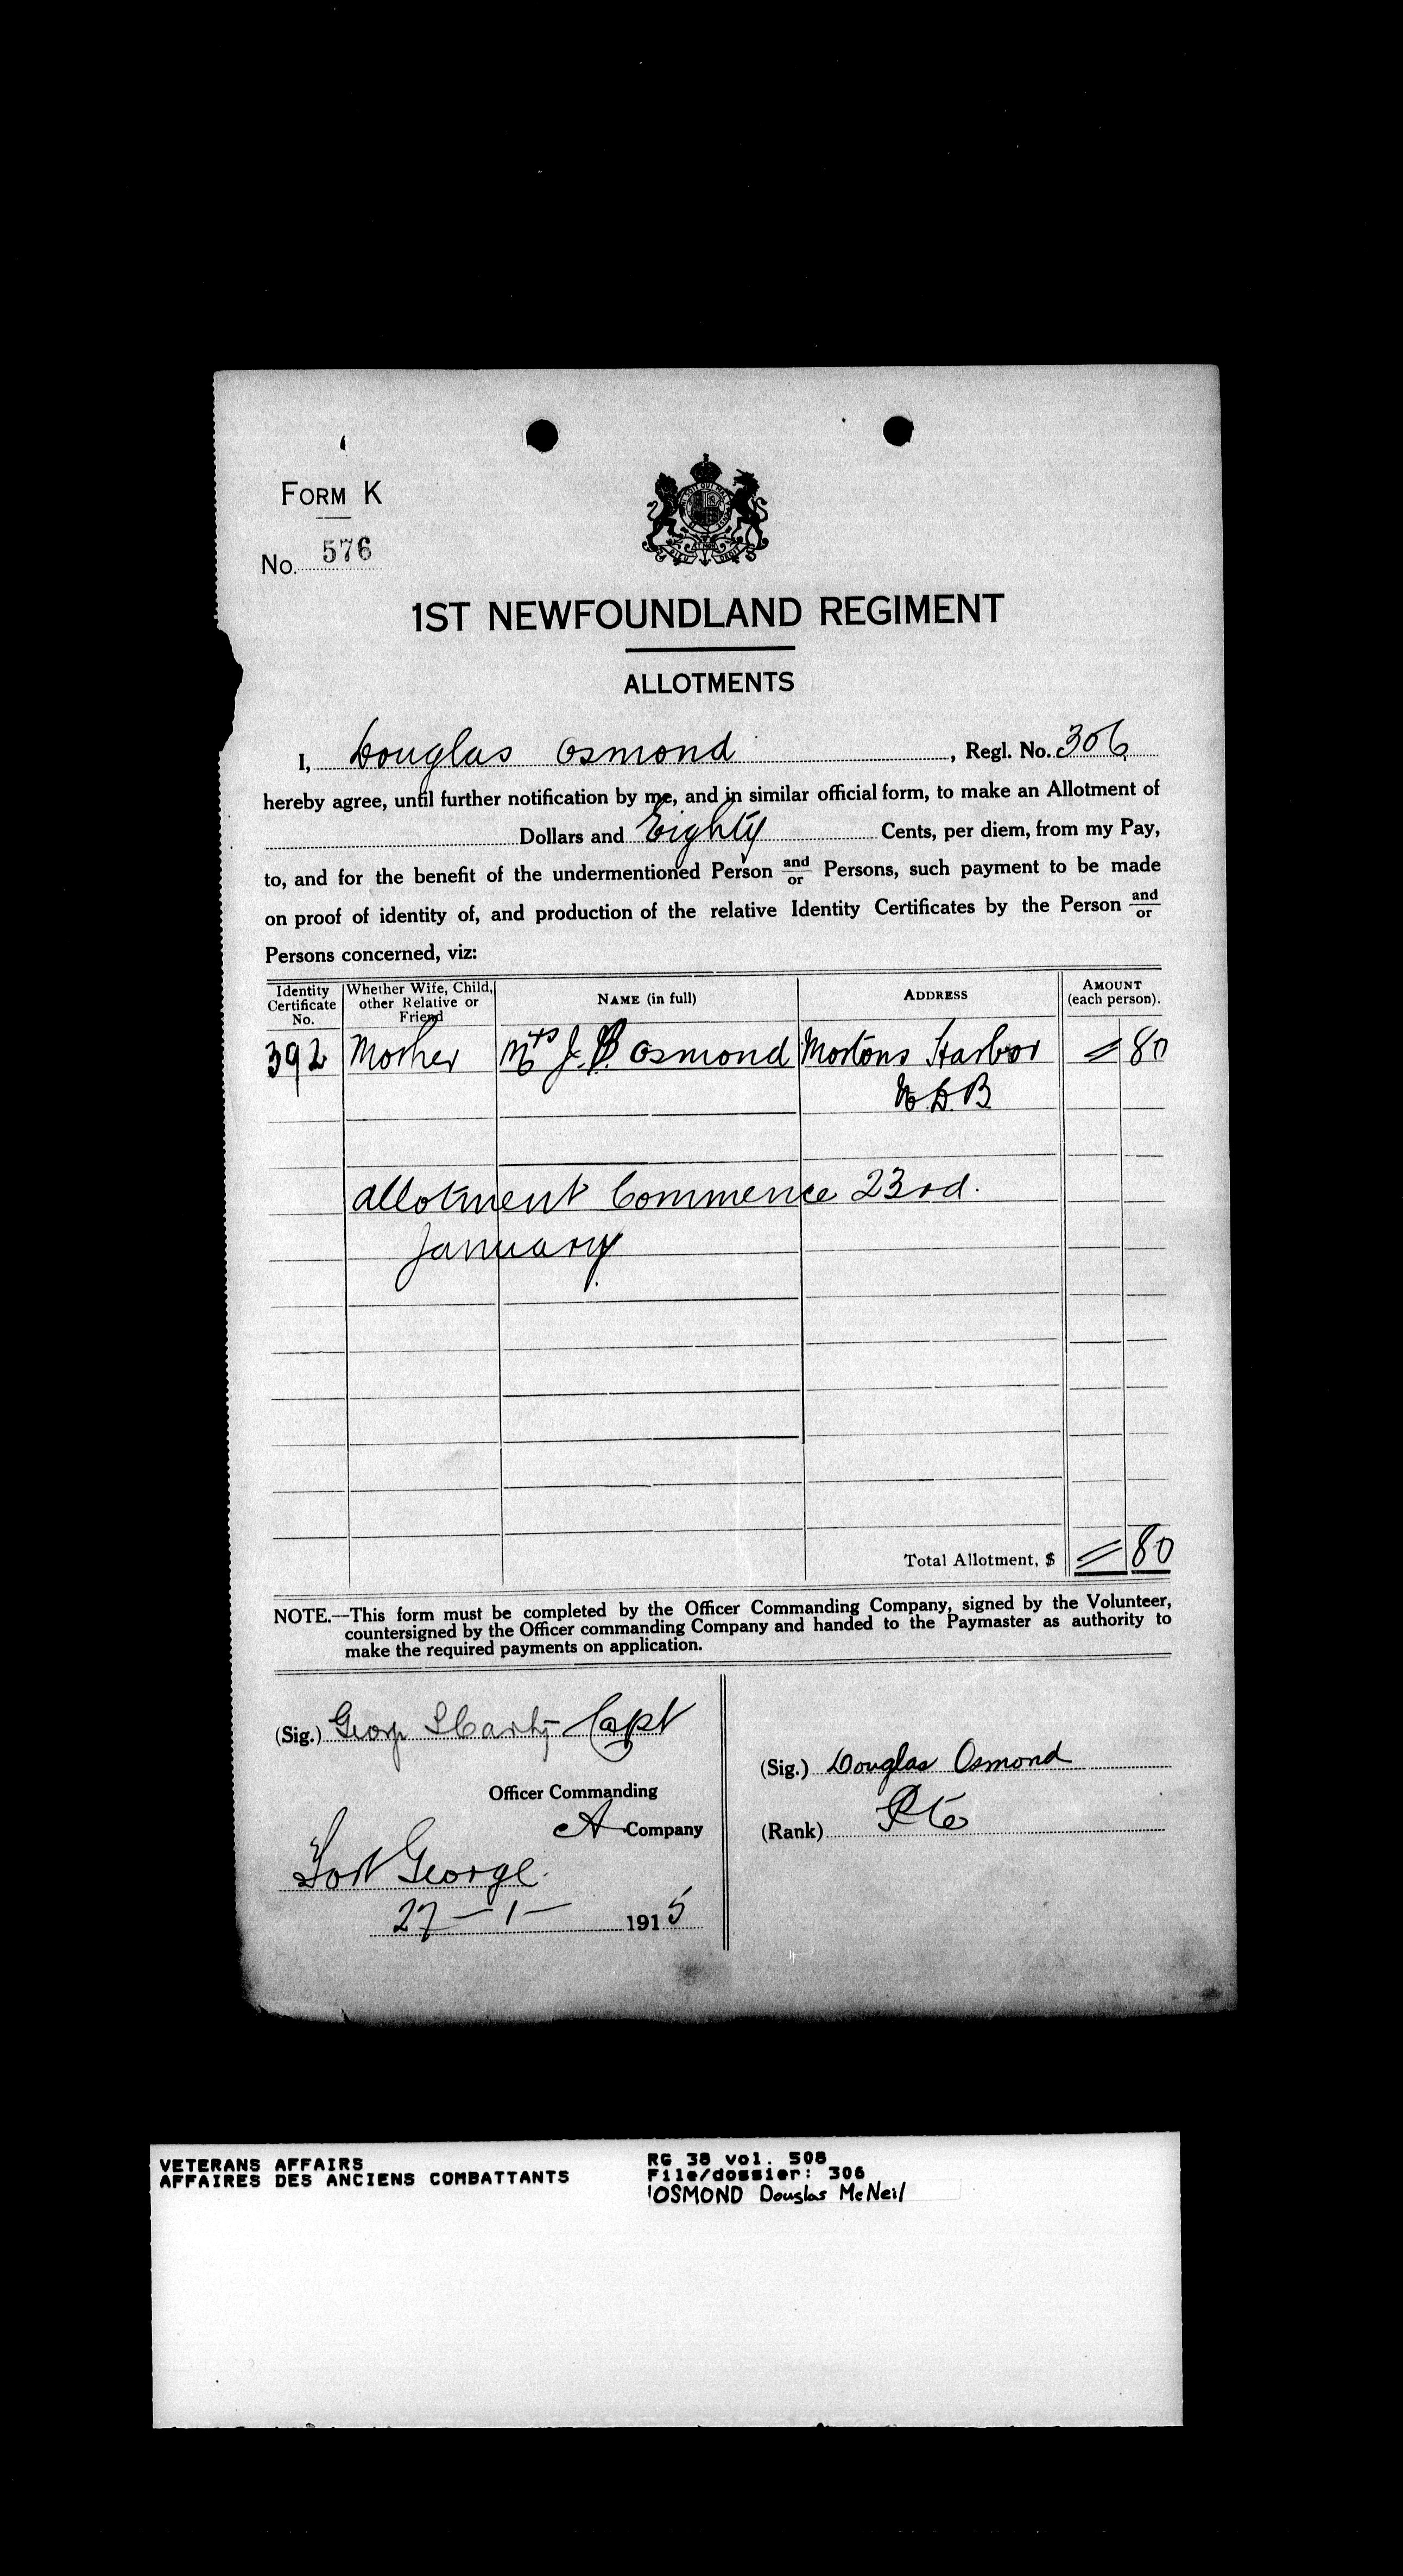 FORM K
No. 576
1ST NEWFOUNDLAND REGIMENT
ALLOTMENTS
I, Douglas Osmond, Regl. No. 306
hereby agree, until further notification by me, and in similar official form, to make an Allotment of
Dollars and Eighty Cents, per diem, from my Pay,
to, and for the benefit of the undermentioned Person and/or Persons, such payment to be made
on proof of identity of, and production of the relative Identity Certificates by the Person and/or
Persons concerned, viz:
Identity Certificate No. Whether Wife, Child, other Relative or Friend NAME (in full) ADDRESS AMOUNT (each person).
392 Mother Mrs J. Osmond Mortons Harbor = 80
N. D. B
allotment Commence 23rd.
January.
Total Allotment, $ = 80
NOTE.—This form must be completed by the Officer Commanding Company, signed by the Volunteer,
countersigned by the Officer commanding Company and handed to the Paymaster as authority to
make the required payments on application.
(Sig.) Capt
Officer Commanding
A Company
Fort George.
27 - 1 - 1915
(Sig.) Douglas Osmond
(Rank) Pte
VETERANS AFFAIRS
AFFAIRES DES ANCIENS COMBATTANTS
RG 38 vol. 508
File/dossier: 306
OSMOND Douglas McNeil